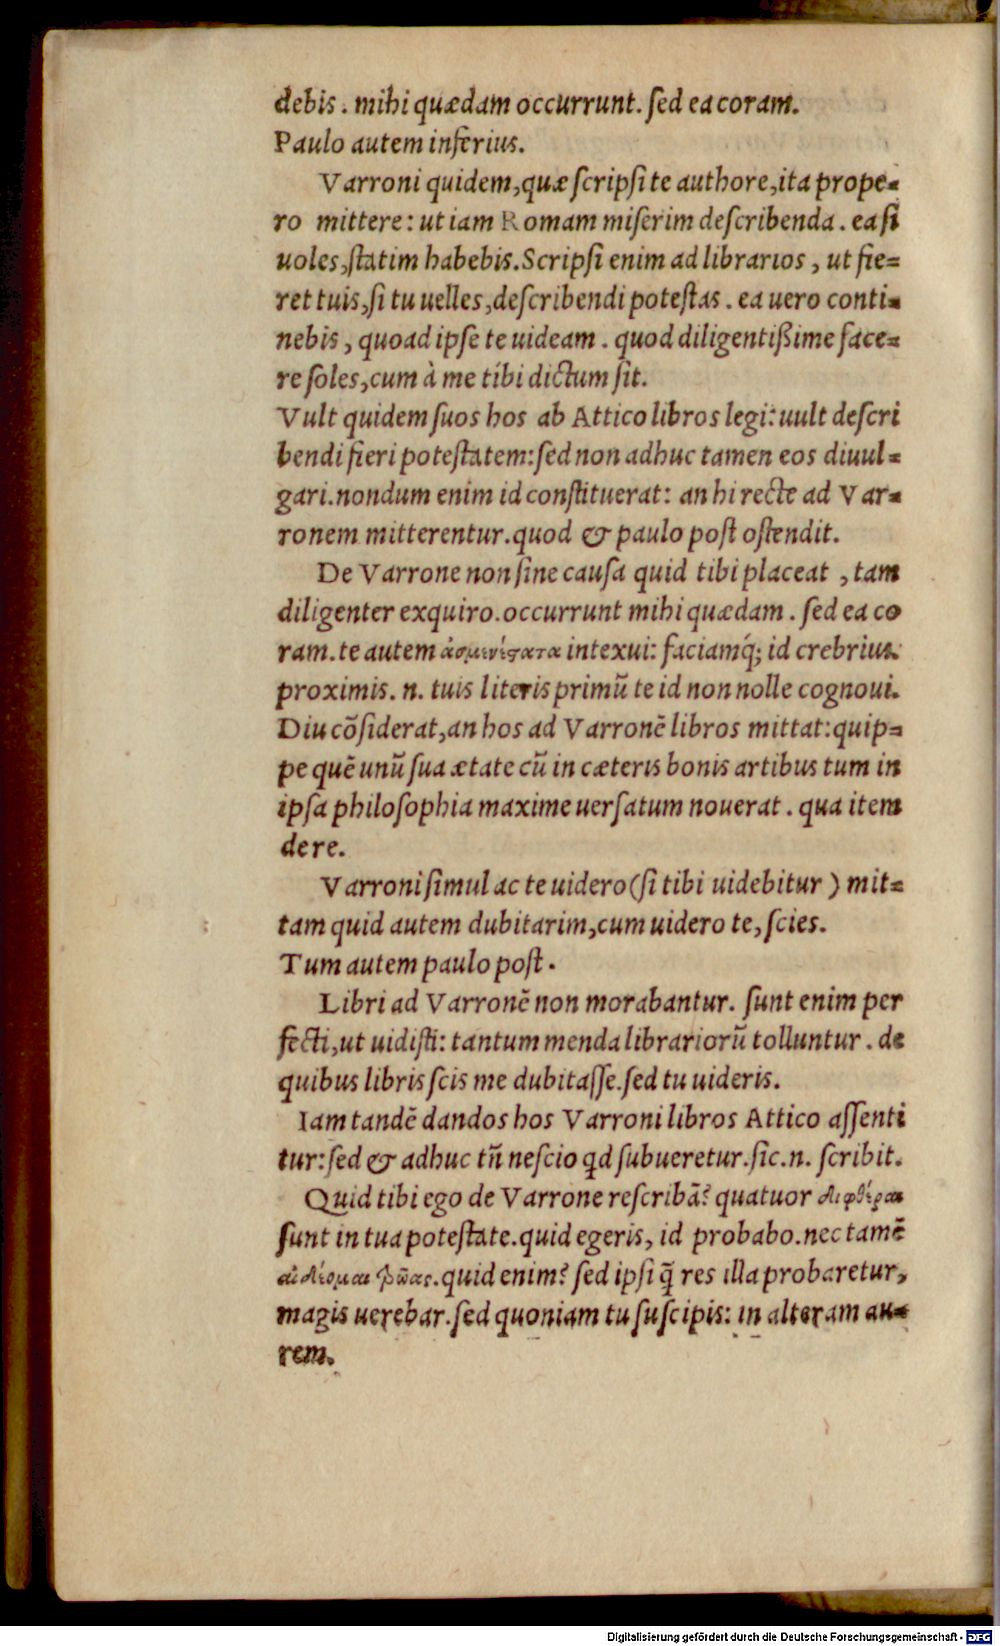 debis. mihi quædam occurrunt. ſed ea coram.
Paulo autem inferius.
Varroni quidem, quæ ſcripſi te authore, ita prope=
ro mittere: ut iam Romam miſerim deſcribenda. ea ſi
uoles, ſtatim habebis. Scripſi enim ad librarios, ut fie=
ret tuis, ſi tu uelles, deſcribendi poteſtas. ea uero conti=
nebis, quoad ipſe te uideam. quod diligentißime face=
re ſoles, cum à me tibi dictum ſit.
Vult quidem ſuos hos ab Attico libros legi: uult deſcri
bendi fieri poteſtatem: ſed non adhuc tamen eos diuul=
gari. nondum enim id conſtituerat: an hi recte ad Var=
ronem mitterentur. quod & paulo poſt oſtendit.
De Varrone non ſine cauſa quid tibi placeat, tam
diligenter exquiro. occurrunt mihi quædam. ſed ea co
ram. te autem ἀσμενέςατα intexui: faciamq́; id crebrius.
proximis. n. tuis literis primũ te id non nolle cognoui.
Diu cõſiderat, an hos ad Varronẽ libros mittat: quip=
pe quẽ unũ ſua ætate cũ in cæteris bonis artibus tum in
ipſa philoſophia maxime uerſatum nouerat. qua item
de re.
Varroni ſimul ac te uidero (ſi tibi uidebitur) mit=
tam quid autem dubitarim, cum uidero te, ſcies.
Tum autem paulo poſt.
Libri ad Varronẽ non morabantur. ſunt enim per
fecti, ut uidiſti: tantum menda librariorũ tolluntur. de
quibus libris ſcis me dubitaſſe. ſed tu uideris.
Iam tandẽ dandos hos Varroni libros Attico aſſenti
tur: ſed & adhuc tñ neſcio qd ſubueretur. ſic. n. ſcribit.
Quid tibi ego de Varrone reſcribã? quatuor διφθέραι
ſunt in tua poteſtate. quid egeris, id probabo. nec tamẽ
αἰδέομαι τρῶας. quid enim? ſed ipſi q̃ res illa probaretur,
magis uerebar. ſed quoniam tu ſuſcipis: in alteram au=
rem.
Digitalisierung gefördert durch die Deutsche Forschungsgemeinschaft - DFG